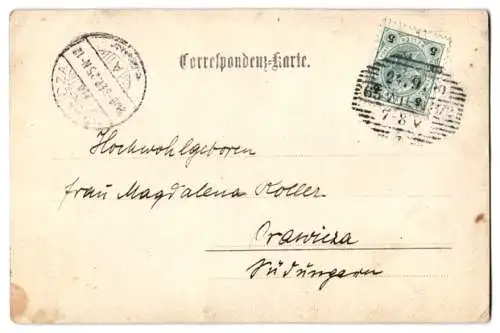 Correspondenz-Karte.
Hochwohlgeboren
Frau Magdalena Koller
Orawicza
Südungarn